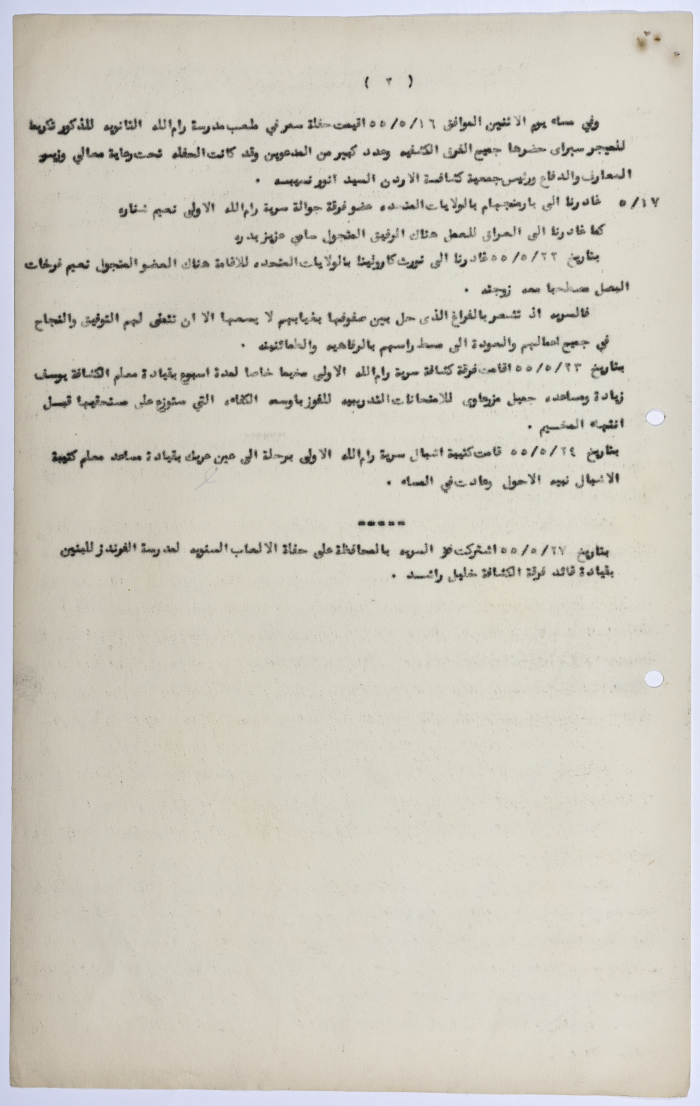 ( ٣ )
وفي مساء يوم الاثنين الموافق ٥٥/٥/١٦ اقيمت حفلة سمر في ملعب مدرسة رام الله الثانويه للذكور تكريما
للميجر سبراى حضرها جميع الفرق الكشفيه وعدد كبير من المدعوين وقد كانت الحفله تحت رعاية معالي وزير
المعارف والدفاع ورئيس جمعية كشافة الاردن السيد انور نسيبه .
٥/١٧ غادرنا الى بالولايات المتحده عضو فرقة جوالة سرية رام الله الاولى نعيم شناره
كما غادرنا الى العراق للعمل هناك الرفيق المتجول سامي عزيز بدره
بتاريخ ٥٥/٥/٢٢ غادرنا الى نورث كارولينا بالولايات المتحده للاقامة هناك العضو المتجول نعيم فرحات
البصل مصطحبا معه زوجته .
فالسريه اذ تشعر بالفراغ الذى حل بين صفوفها بغيابهم لا يسعها الا ان تتمنى لهم التوفيق والنجاح
في جميع اعمالهم والعودة الى مسقط راسهم بالرفاهيه والطمائنينه .
بتاريخ ٥٥/٥/٢٣ اقامت فرقة كشافة سرية رام الله الاولى مخيما خاصا لمدة اسبوع بقيادة معلم الكشافة يوسف
زيادة ومساعده جميل مزعاوى للامتحانات التدريبيه للفوز باوسمه الكفاءه التي ستوزع على مستحقيها قبل
انتهاء المخيم .
بتاريخ ٥٥/٥/٢٤ قامت كتيبة اشبال سرية رام الله الاولى برحلة الى عين عريك بقيادة مساعد معلم كتيبة
الاشبال نبيه الاحول وعادت في المساء .
*****
بتاريخ ٥٥/٥/٢٧ اشتركت السريه بالمحافظة على حفلة الالعاب السنويه لمدرسة الفرندز للبنين
بقيادة قائد فرقة الكشافة خليل راشد .